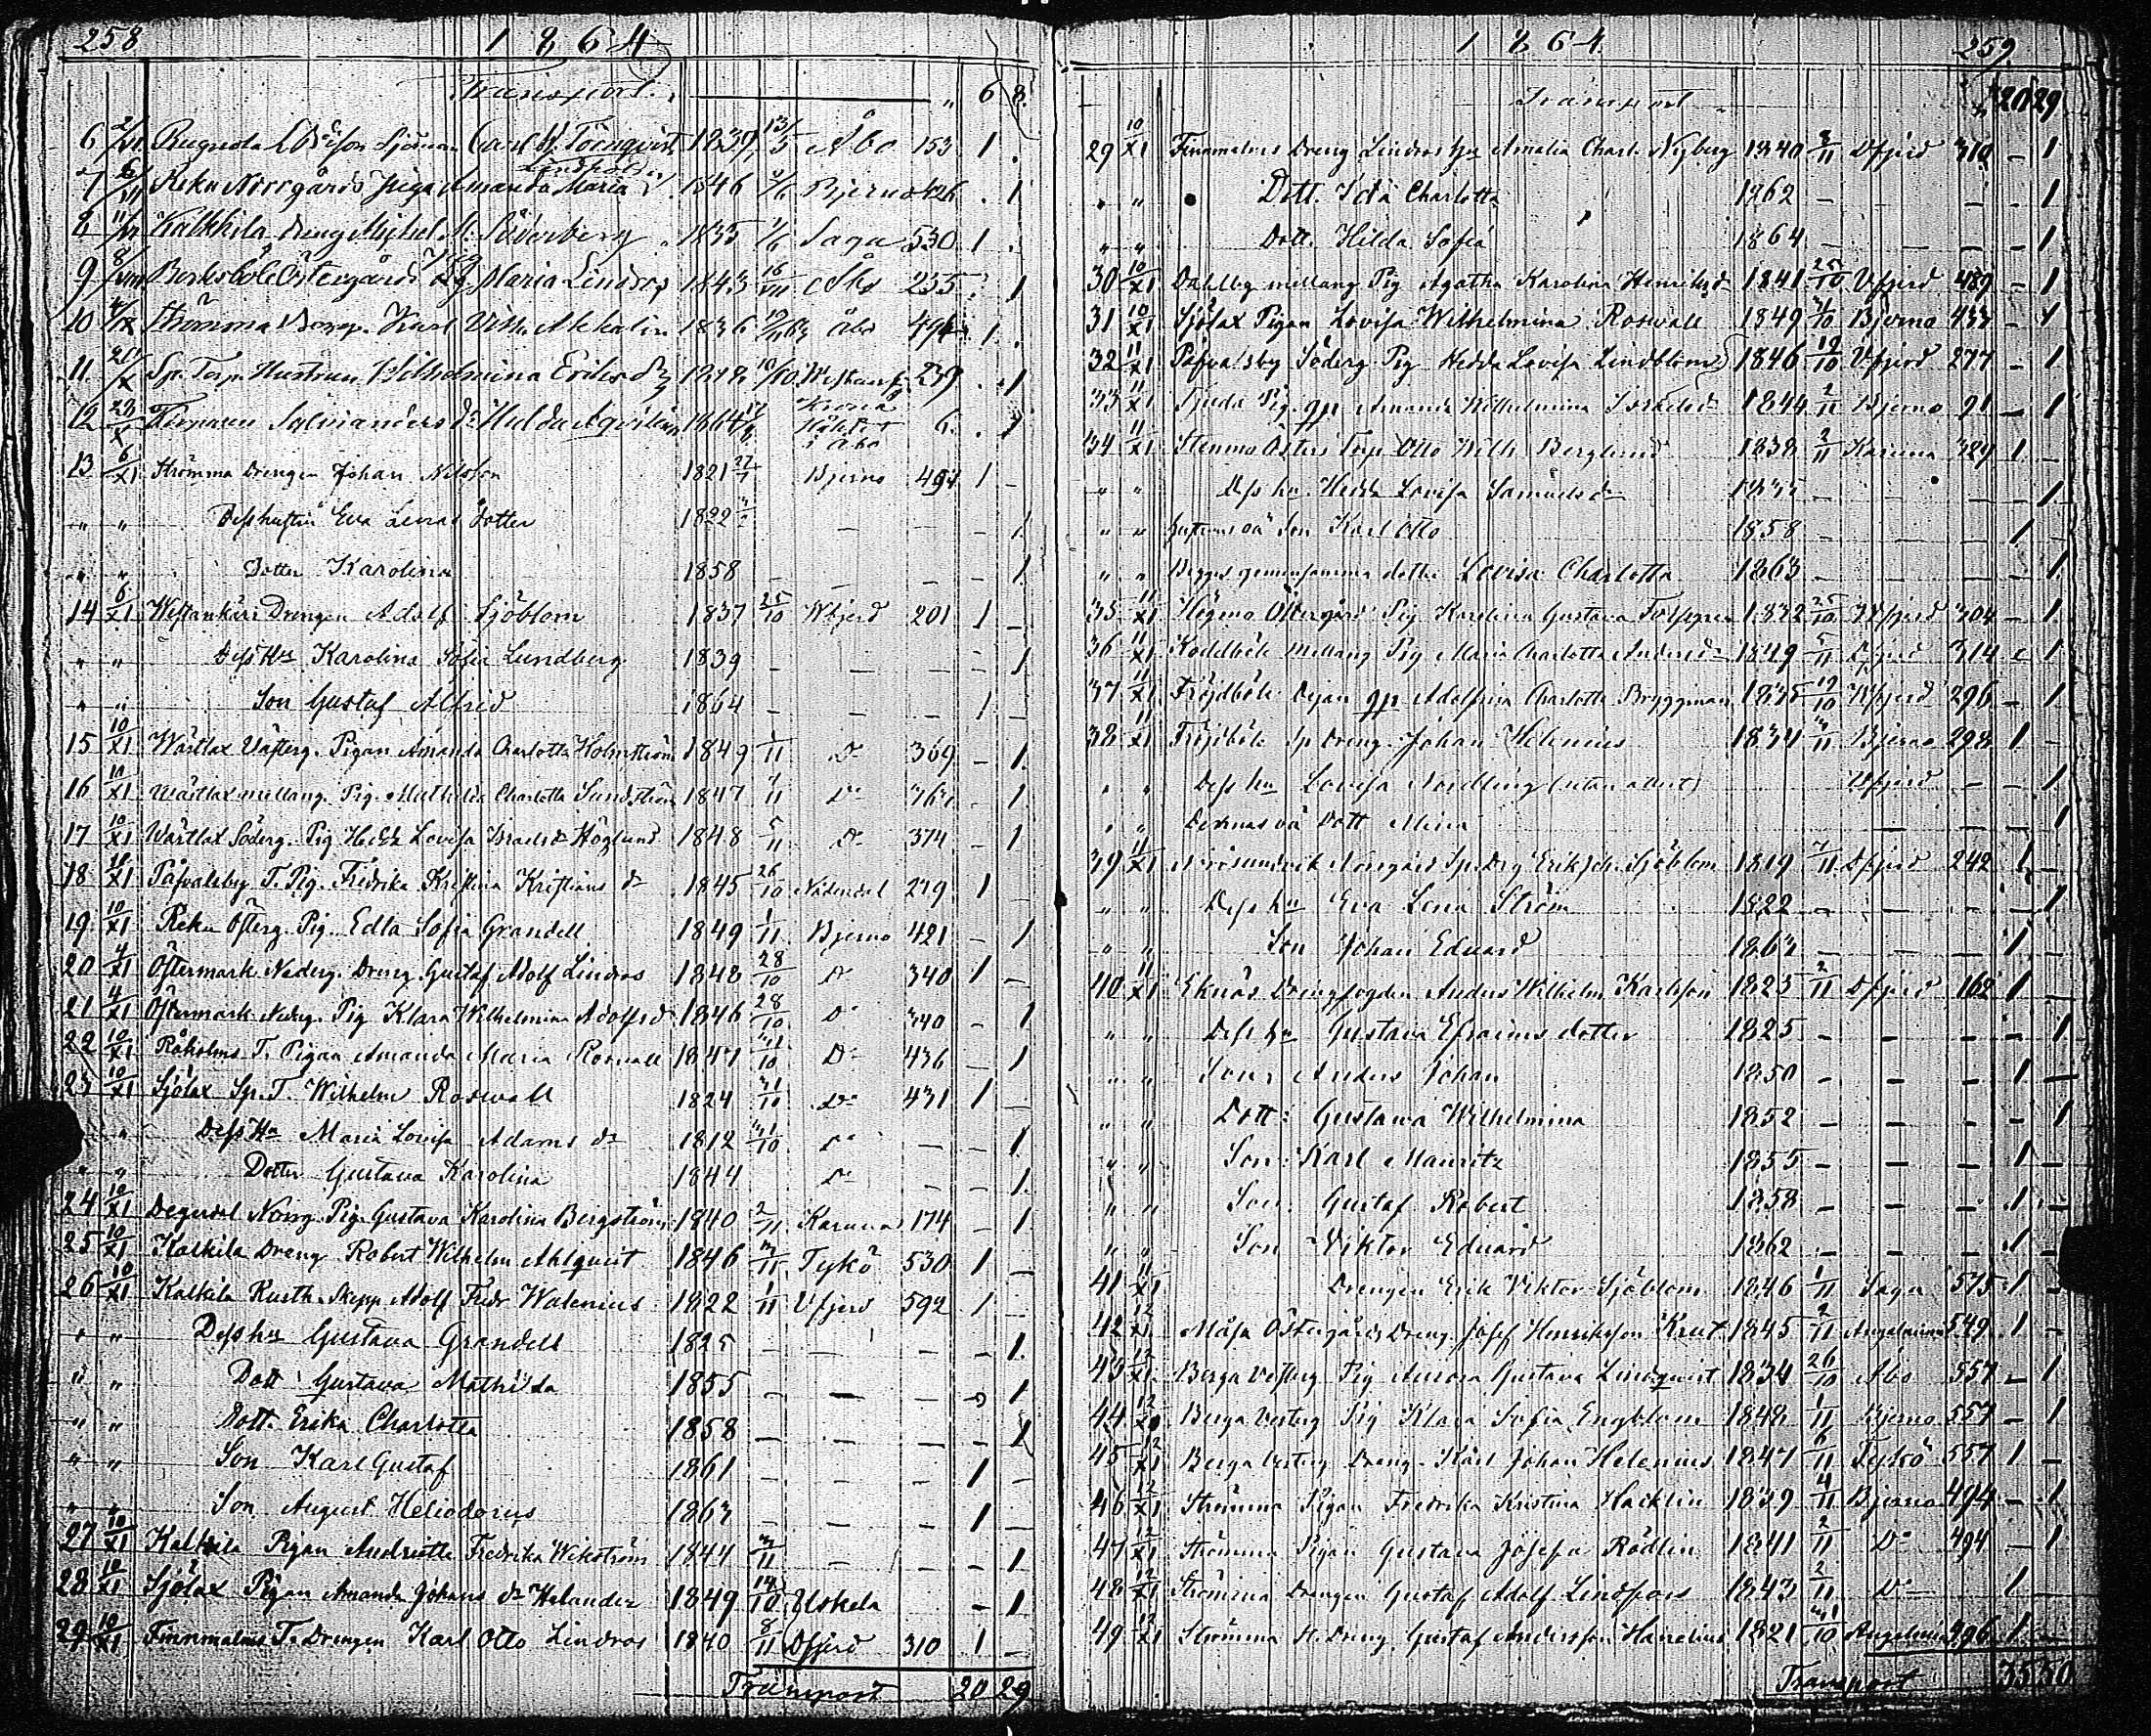 258 1864
Transport 6 8
6 Sjöman Carl Törnqvist 1839 13/5 Åbo 153 1
Lindholm
7 Reku Norrgårds Piga Amanda Maria 1846 Bjerno 426 1
8 11 Kalkkila dreng Michel M. Söderberg 1835 Saga 530 1
9 8 Östergårds Pig Maria Lindros 1843 16/VII Åbo 255 1
10 Strömma Karl Vilh. 1836 Åbo 494 1
11 20/X Sp. Torp. Hustrun Wilhelmina Eriks dr 239 1
Krono
12 28/X Hulda 1864 Häktet 6 1
i Åbo
13 6/XI Strömma Drengen Johan Nilsson 1821 27 Bjerno 494 1 –
" " Dess hustru Eva Lenas dotter 1822 – – – 1
" " Dotter Karolina 1858 – – – – 1
14 6/XI Westankärr Drengen Adolf Sjöblom 1837 25/10 Wfjerd 201 1 –
" " Dess Hu Karolina Sofia Lundberg 1839 – – – – 1
" " Son Gustaf Alfrid 1864 – – – 1 –
15 10/XI Wärtlax Pigan Amanda Charlotta Holmström 1849 1/11 Do 369 – 1
16 10/XI Wärtlax mellang. Pig. Mathilda Charlotta Sundström 1847 Do – 1
17 10/XI Wärtlax Söderg. Pig Hedda Lovisa Israelsdr Höglund 1848 5/11 Do 374 – 1
18 10/XI Påfvalsby T. Pig. Fredrika Kristina Kristians dr 1845 26/10 Nådendal 279 1 –
19 10/XI Reku Österg. Pig. Edla Sofia Grandell 1849 1/11 Bjerno 421 – 1
20 4/XI Östermark Nederg. Dreng Gustaf Adolf Lindros 1848 28/10 Do 340 1 –
21 4/XI Östermark Nederg. Pig Klara Wilhelmina Adolfsd 1846 28/10 Do 340 – 1
22 10/XI Råholms T. Pigan Amanda Maria Roswall 1847 31/10 Do 436 – 1
23 10/XI Sjölax Sp. T. Wilhelm Roswall 1824 31/10 Do 431 1 –
" Dess Hu Maria Lovisa Adams dr 1812 31/10 Do – – 1
" " Dotter Gustava Karolina 1844 Do – – 1
24 10/XI Degerdal Norrg. Pig. Gustava Karolina Bergström 1840 2/11 Karuna 174 – 1
25 10/XI Kalkila Dreng Robert Wilhelm Ahlqvist 1846 3/11 Tykö 530 1 –
26 10/XI Kalkila Kusth. Skepp. Adolf Fredr Walenius 1822 1/11 Vfjerd 592 1
" " Dess hu Gustava Grandell 1825 – – – – 1
" " Dott Gustava Mathilda 1855 – – – – 1
" " Dott. Erika Charlotta 1858 – – – – 1
" " Son Karl Gustaf 1861 – – – 1 –
" " Son August Heliodorus 1863 – – – 1 –
27 10/XI Kalkila Pigan Andriette Fredrika Wikström 1844 3/11 – – – 1
28 10/XI Sjölax Pigan Amanda Johans dr Helander 1849 14/10 Uskela – 1
29 10/XI Finnmalms T. Drengen Karl Otto Lindros 1840 8/11 Dfjerd 310 1 –
Transport 20 29
1864 259
Transport 20 29
29 10/XI Finnmalms Dreng Lindros hu Amalia Charl. Nyberg 1840 8/11 Dfjerd 310 – 1
" " Dott. Ida Charlotta 1862 – – – – 1
" " Dott. Hilda Sofia 1864 – – – – 1
30 10/XI Dahlby mellang Pig Agatha Karolina Henriksdr 1841 25/10 Vfjerd 489 – 1
31 10/XI Sjölax Pigan Lovisa Wilhelmina Roswall 1849 31/10 Bjerno 433 – 1
32 11/XI Påfvalsby Söderg. Pig Hedda Lovisa Lindblom 1846 19/10 Vfjerd 277 – 1
33 11/XI Tjuda Pig. Amanda Wilhelmina Israelsdr 1844 2/11 Bjerno 91 – 1
34 11/XI Otto Wilh. Berglund 1838 2/11 Karuna 329 1 –
" " Dess hu Hedda Lovisa Samuelsdr 1835 – – – – 1
" " hustruns oä son Karl Otto 1858 – – – 1
" " Begges gemensamma dotter Lovisa Charlotta 1863 – – – – 1
35 11/XI Högmo Östergård Pig Karolina Gustava 1832 25/10 Wfjerd 304 – 1
36 11/XI Koddböle mellang Pig Maria Charlotta Andersdr 1849 5/11 Dfjerd 314 – 1
37 11/XI Fröjdböle Dejan Adolfina Charlotta Bryggman 1835 19/10 Wfjerd 296 – 1
38 11/XI Fröjdböle Sp Dreng Johan Helenius 1834 3/11 Bjerno 298 1 –
" " Dess hu Lovisa Nordling (utan attest) Dfjerd – – 1
" " Dennas oä Dott Mina – – – 1
39 11/XI Norrgård Sp. Drg Erik Joh. Sjöblom 1819 7/11 Dfjerd 242 1 –
" " Dess hu Eva Lena Ström 1822 – – – – 1
" " Son Johan Eduard 1863 – – – 1 –
40 11/XI Eknäs Drengfogden Anders Wilhelm Karlsson 1825 2/11 Dfjerd 162 1 –
" " Dess hu Gustava Efraims dotter 1825 – – – – 1
" " Son Anders Johan 1850 – – – 1 –
" " Dott: Gustava Wilhelmina 1852 – – – – 1
" " Son: Karl Mauritz 1855 – – – 1 –
" " Son Gustaf Robert 1858 – – – 1 –
" " Son Viktor Eduard 1862 – – – 1 –
41 11/XI Drengen Erik Viktor Sjöblom 1846 1/11 Sagu 575 1 –
42 12/XI Måsa Östergårds Dreng Josef Henriksson Knut 1845 2/11 Angelniemi 549 1 –
43 12/XI Berga Vesterg Pig Aurora Gustava Lindqvist 1834 26/10 Åbo 557 – 1
44 12/XI Berga Vesterg Pig Klara Sofia Engblom 1848 1/11 Bjerno 557 – 1
45 12/XI Berga Vesterg Dreng Karl Johan Helenius 1847 6/11 Tykö 557 1 –
46 12/XI Strömma Pigan Fredrika Kristina Hacklin 1839 4/11 Bjerno 494 – 1
47 12/XI Strömma Pigan Gustava Josefa Rödlin 1841 2/11 Do 494 – 1
48 12/XI Strömma Drengen Gustaf Adolf Lindfors 1843 2/11 Do 1 –
49 12/XI Strömma St. Dreng. Gustaf Andersson Hanelius 1821 31/10 Angelniemi 496 1 –
Transport 35 50